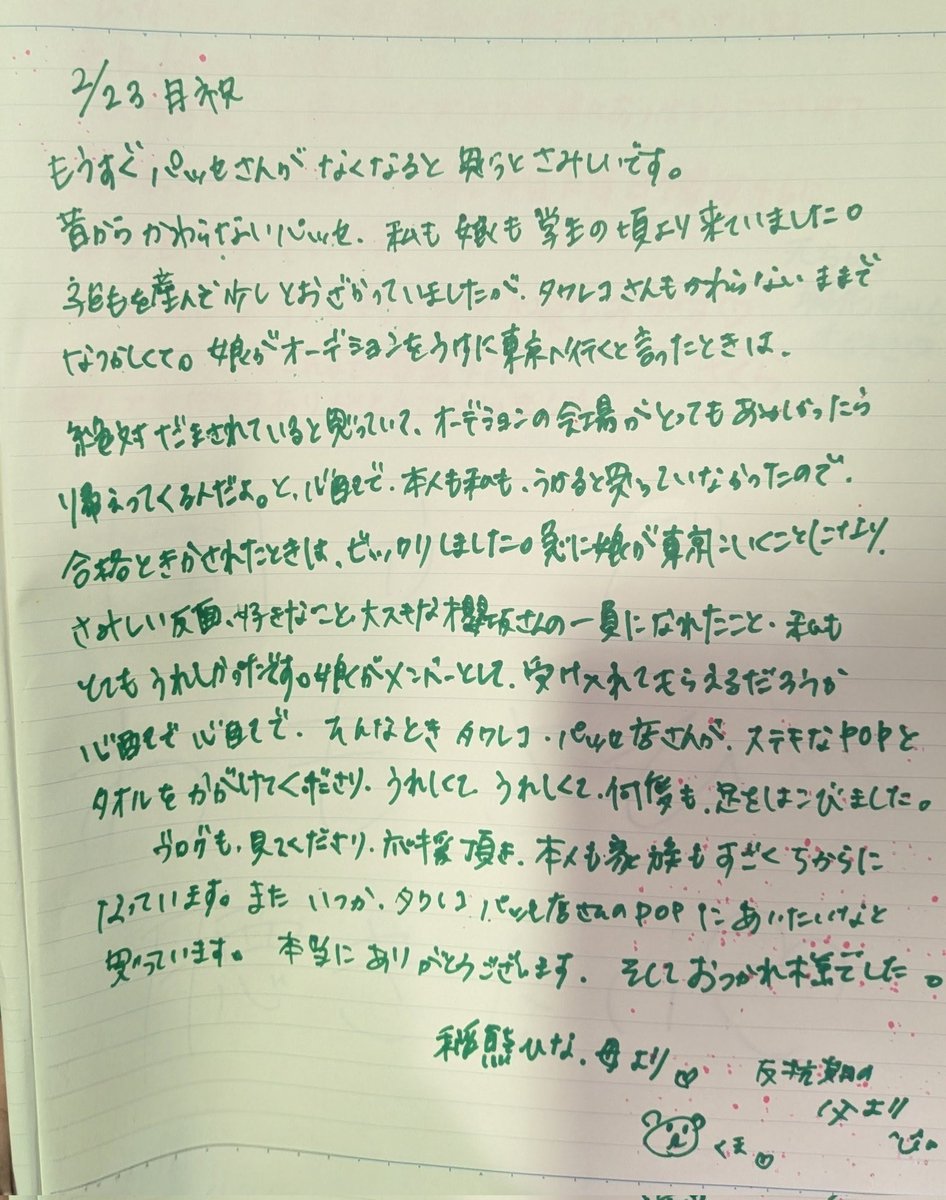 2/23 月祝
もうすぐパッセさんがなくなると思うとさみしいです。
昔からかわらないパッセ、私も娘も学生の頃より来ていました。
子どもを産んで少しとおざかっていましたが、タワレコさんもかわらないままで
なつかしくて。娘がオーデションをうけに東京へ行くと言ったときは、
絶対だまされていると思っていて、オーデションの会場がとってもあやしかったら
帰えってくるんだよ。と、心配で、本人も私も、うかると思っていなかったので、
合格ときかされたときは、ビックリしました。急に娘が東京にいくことになり、
さみしい反面、好きなこと、大スキな櫻坂さんの一員になれたこと、私も
とてもうれしかったです。娘がメンバーとして、受け入れてもらえるだろうか
心配で心配で、そんなときタワレコ・パッセ店さんが、ステキなPOPと
タオルをかがげてくださり、うれしくて、うれしくて、何度も、足をはこびました。
ブログも、見てくださり、応援頂き、本人も家族もすごくちからに
なっています。またいつか、タワレコパッセ店さんのPOPにあいたいなと
思っています。本当にありがとうございます、そしておつかれ様でした。
稲熊ひな、母より♡
反抗期の
父より
くま♡